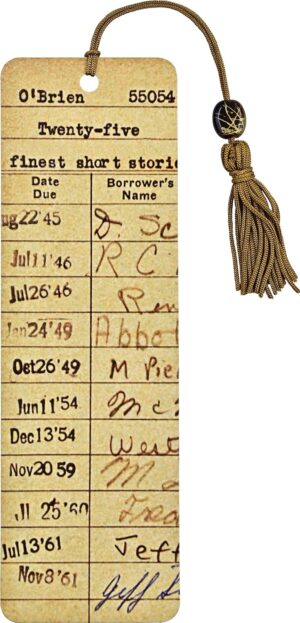 O'Brien 55054
Twenty-five
finest short storie
Date Due Borrower's Name
ug 22'45 D. Sc
Jul 11'46 R C
Jul 26'46 Ren
Jan 24'49 Abbot
Oct 26'49 M Pie
Jun 11'54 Mc
Dec 13'54 West
Nov 20 59 M
Jl 25'60 Fred
Jul 13'61 Jeff
Nov 8'61 Jeff S